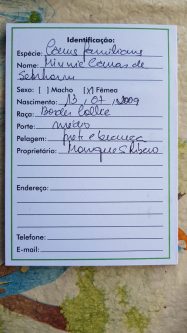 Identificação:
Espécie: Canus familiaris
Nome: Minnie
de
Sexo: [ ] Macho [X] Fêmea
Nascimento: 13, 07, 2009
Raça: Border Collie
Porte: médio
Pelagem: preto e branca
Proprietário: Monique S Ribeiro
Endereço:
Telefone:
E-mail: